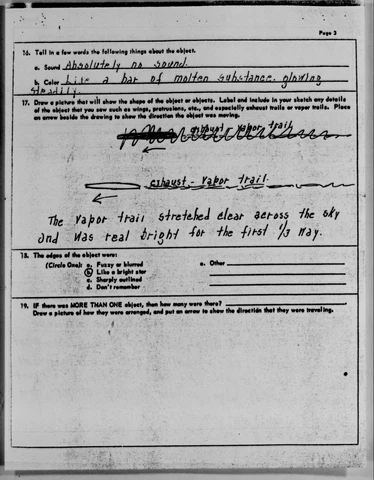 Page 3
16. Tell in a few words the following things about the object.
a. Sound Absolutely no sound.
b. Color Like a bar of molten substance. glowing
steadily.
17. Draw a picture that will show the shape of the object or objects. Label and include in your sketch any details
of the object that you saw such as wings, protrusions, etc., and especially exhaust trails or vapor trails. Place
an arrow beside the drawing to show the direction the object was moving.
exhaust vapor trail
exhaust - vapor trail.
The vapor trail stretched clear across the sky
and was real bright for the first 1/3 way.
18. The edges of the object were:
(Circle One): a. Fuzzy or blurred e. Other
b. Like a bright star
c. Sharply outlined
d. Don't remember
19. IF there was MORE THAN ONE object, then how many were there?
Draw a picture of how they were arranged, and put an arrow to show the direction that they were traveling.